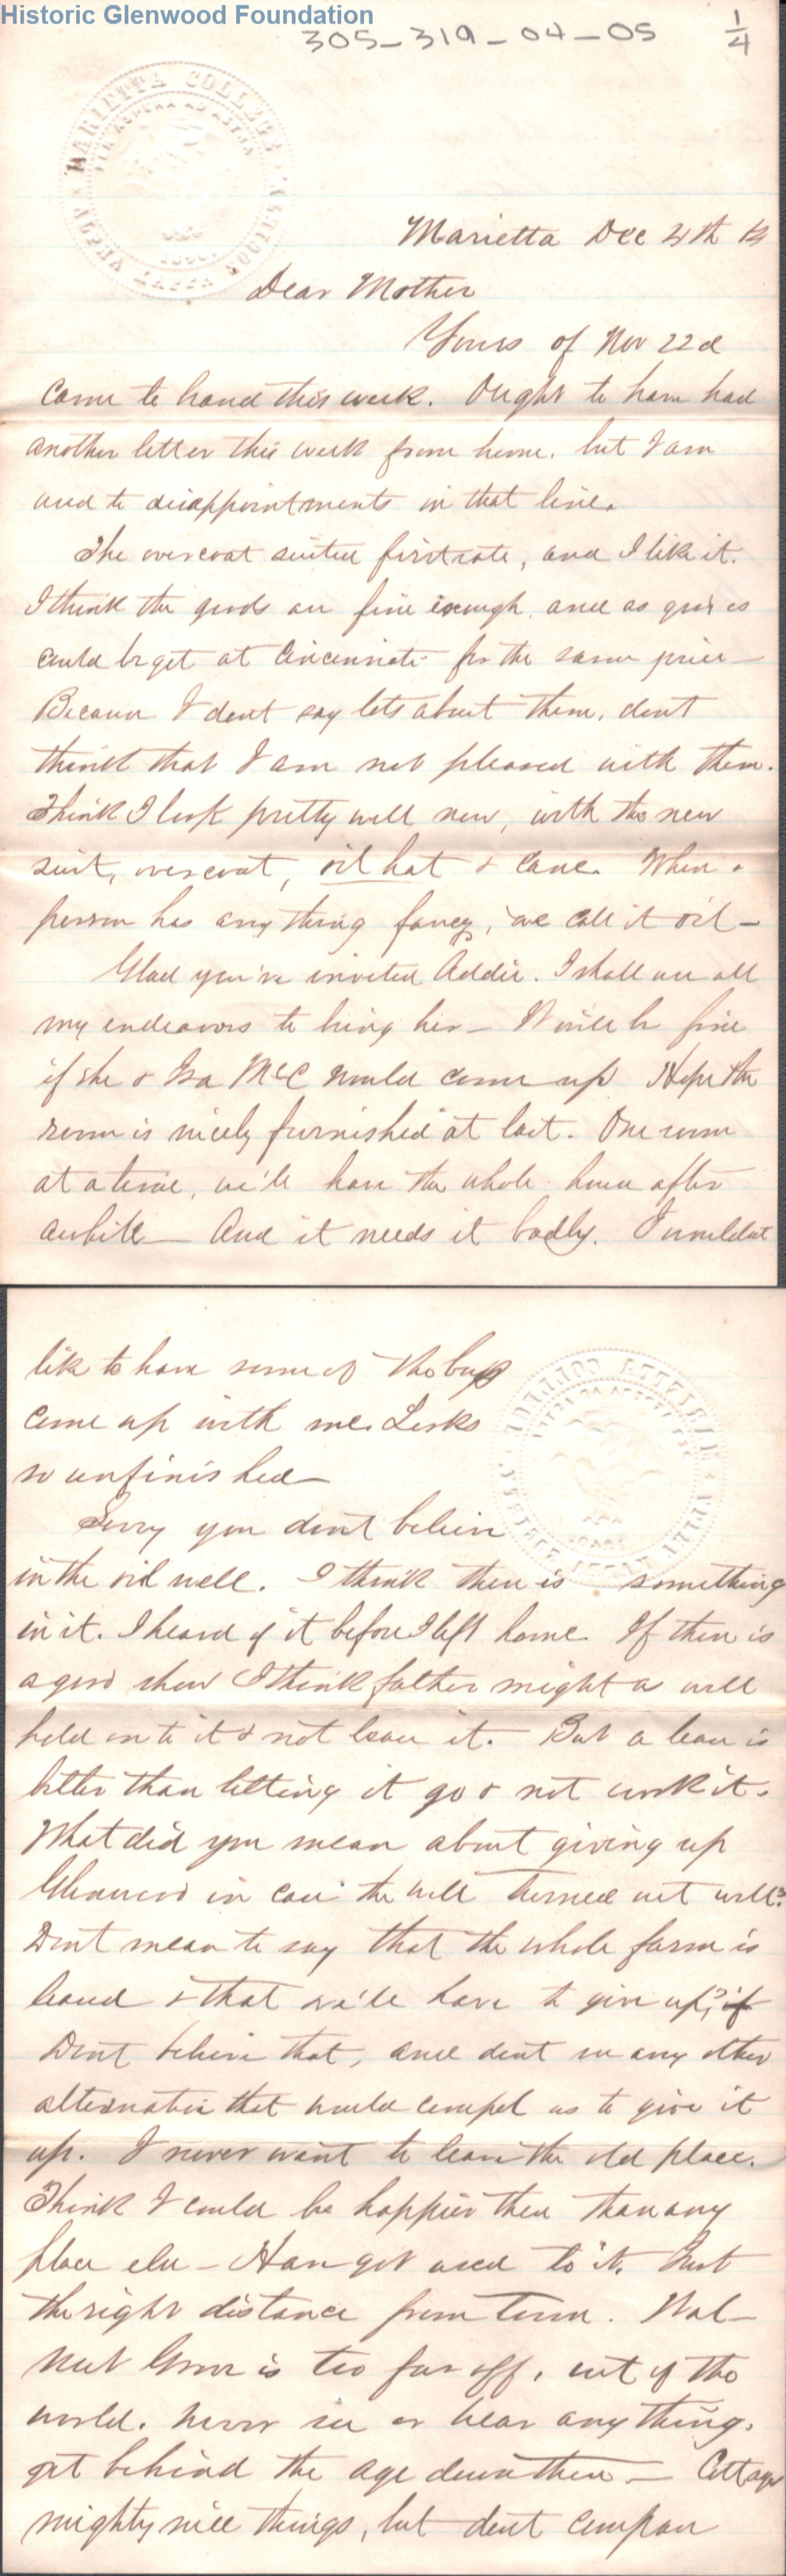 Historic Glenwood Foundation
305-319-04-05 1/4
MARIETTA COLLEGE
ALPHA KAPPA SOCIETY
Marietta Dec 4th
Dear Mother
Yours of Nov 22d
came to hand this week. Ought to have had
another letter this week from home, but I am
used to disappointments in that line.
The overcoat suited firstrate, and I like it.
I think the goods are fine enough, and as good as
could be get at Cincinnati for the same price—
Because I dont say lots about them, dont
think that I am not pleased with them.
Think I look pretty well now, with the new
suit, overcoat, oil hat & cane. When a
person has any thing fancy, we call it oil—
Glad you've invited Addie. I shall use all
my endeavors to bring her— Would be fine
if she & Isa McC would come up Hope the
room is nicely furnished at last. One room
at a time, we'll have the whole house after
awhile— And it needs it badly. I wouldnt
like to have some of the boys
come up with me. Looks
so unfinished—
Sorry you dont believe
in the oil well. I think there is something
in it. I heard of it before I left home. If there is
a good show I think father might as well
hold on to it & not lease it. But a lease is
better than letting it go & not work it.
What did you mean about giving up
Glenwood in case the well turned out well?
Dont mean to say that the whole farm is
leased & that we'll have to give up? if
Dont believe that, and dont see any other
alternative that would compel us to give it
up. I never want to leave the old place.
Think I could be happier there than any
place else— Have got used to it. Just
the right distance from town. Wal-
nut Grove is too far off, out of the
world. Never see or hear any thing.
get behind the age down there— Cottages
mighty nice things, but dont compare